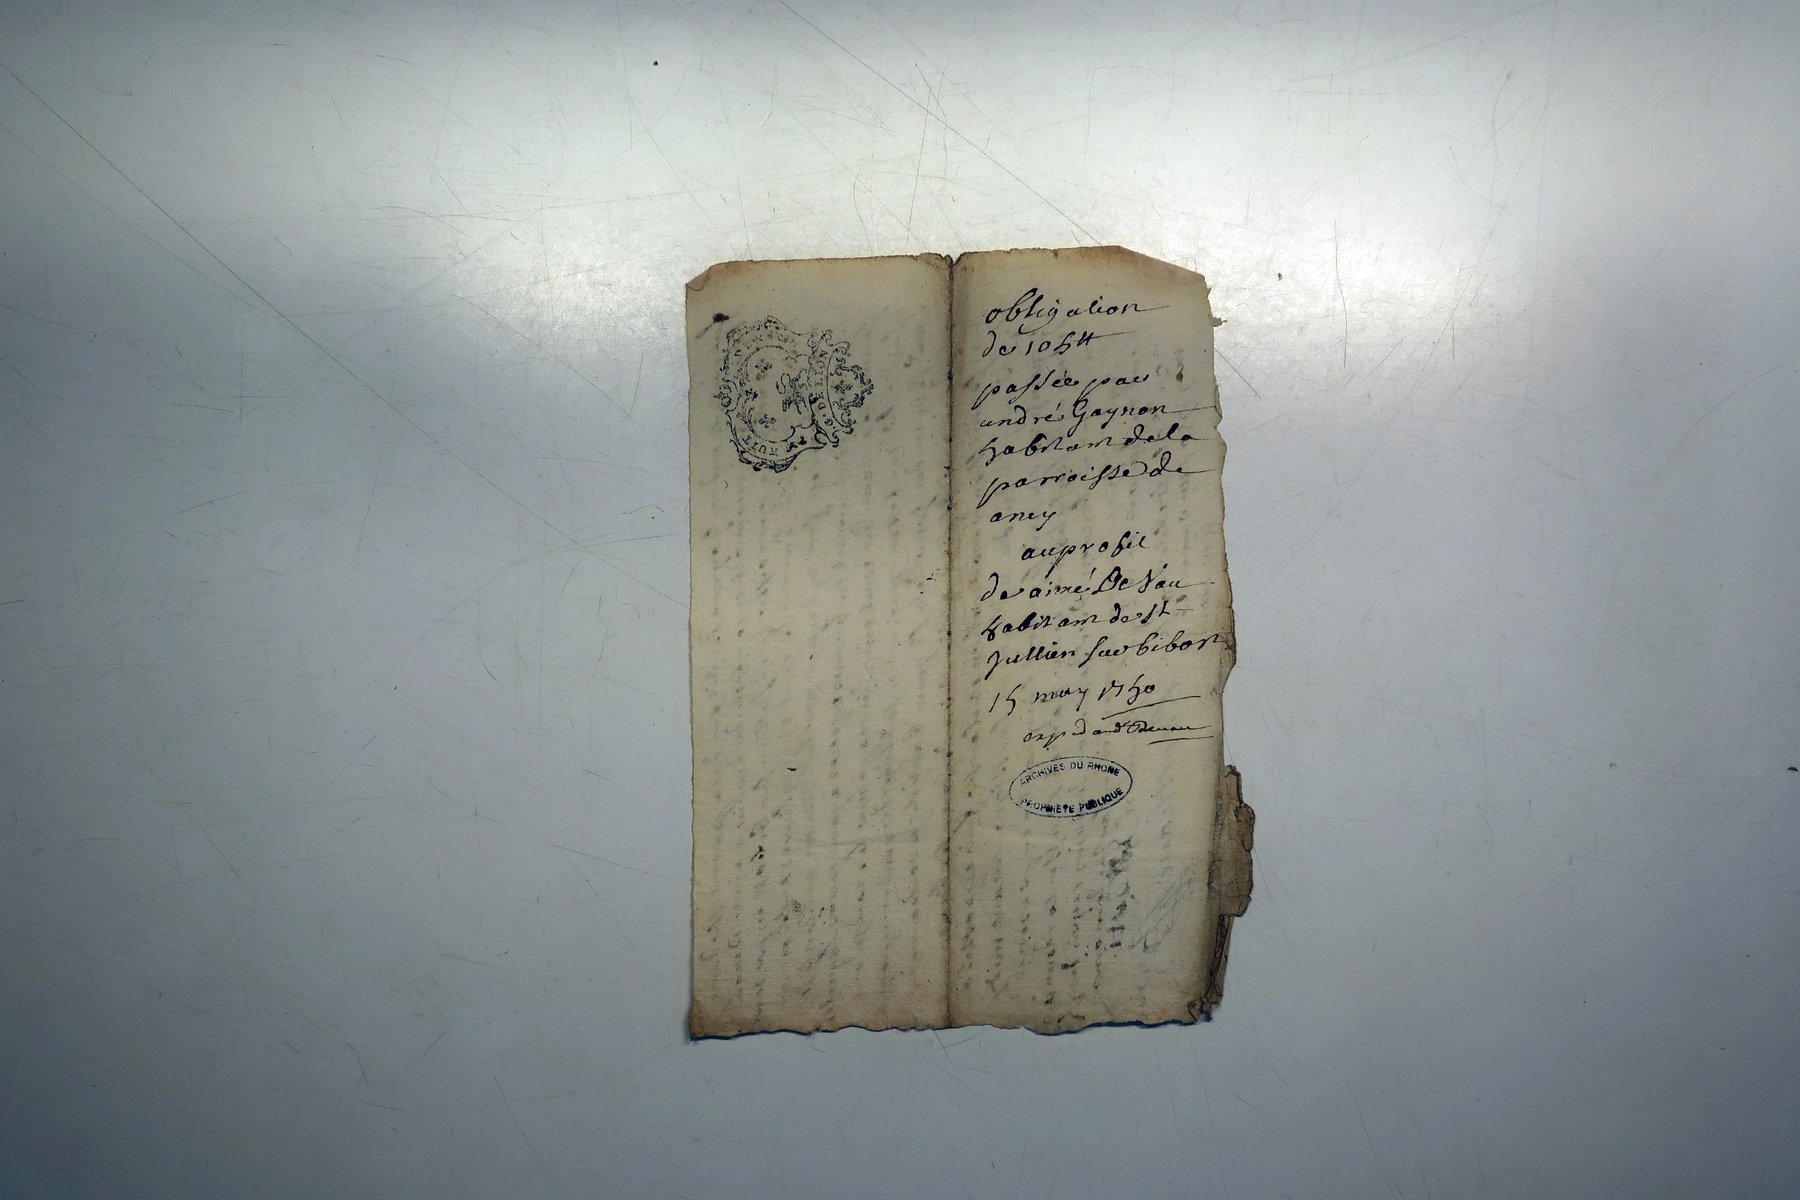 G. DE LION
HUIT
obligation
de 105ᵗᵗ
passée par
andré Gaynon
habitant de la
parroisse de
ancy
au profit
de aimé De Vau
habitant de St
Jullien sur bibost
15 may 1750
exp d and
ARCHIVES DU RHONE
PROPRIETE PUBLIQUE